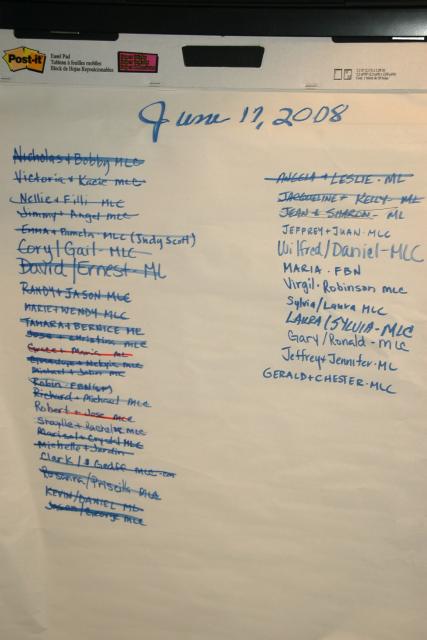 Post-it
Easel Pad
Tableau à feuilles mobiles
Block de Hojas Reposicionables
June 17, 2008
Nicholas + Bobby MLC
Victoria + Kacie MLC
Nellie + Filli MLC
Jimmy + Angel MLC
Emma + Pamela MLC (Judy Scott)
Cory/Gail - MLC
David/Ernest - ML
RANDY + JASON MLC
MARIE + WENDY MLC
TAMARA + BERNICE ML
Jose + Christina MLC
Grace + Maria ML
Michael + John ML
Robin FBN
Richard + Michael MLC
Robert + Jose MLC
Shaylle + Rachel MLC
Marisol + Crystal MLC
Michelle + Jardin
Clark / Geoff MLC
Rosanna/Priscilla MLC
KEVIN/DANIEL ML
Jason/George MLC
ANGELA + LESLIE - ML
JACQUELINE + KELLY - ML
JEAN & SHARON - ML
JEFFREY + JUAN - MLC
Wilfred/Daniel - MLC
MARIA - FBN
Virgil - Robinson MLC
Sylvia/Laura MLC
LAURA/SYLVIA - MLC
Gary/Ronald - MLC
Jeffrey + Jennifer - ML
GERALD + CHESTER - MLC